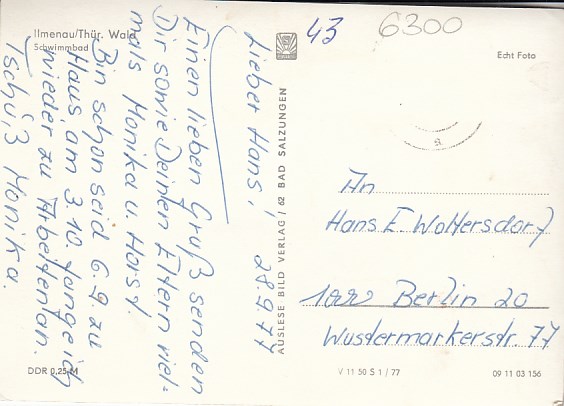 Ilmenau/Thür. Wald
Schwimmbad
43
6300
Echt Foto
Lieber Hans, 28.9.77
Einen lieben Gruß senden
Dir sowie Deinen Eltern viel-
mals Monika u. Horst.
Bin schon seid 6.9 zu
Haus am 3.10. fange ich
wieder zu Arbeiten an.
Tschüß Monika.
AUSLESE BILD VERLAG 62 BAD SALZUNGEN
An
Hans E. Woltersdorf
Berlin 20
Wustermarkerstr. 77
DDR 0,25 M
V 11 50 S 1 / 77
09 11 03 156